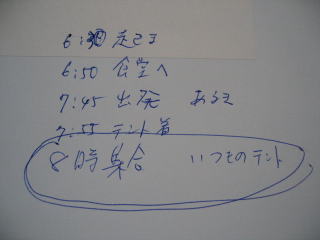 6:30 起きる
6:50 食堂へ
7:45 出発 あるき
7:55 テント着
8時集合 いつものテント